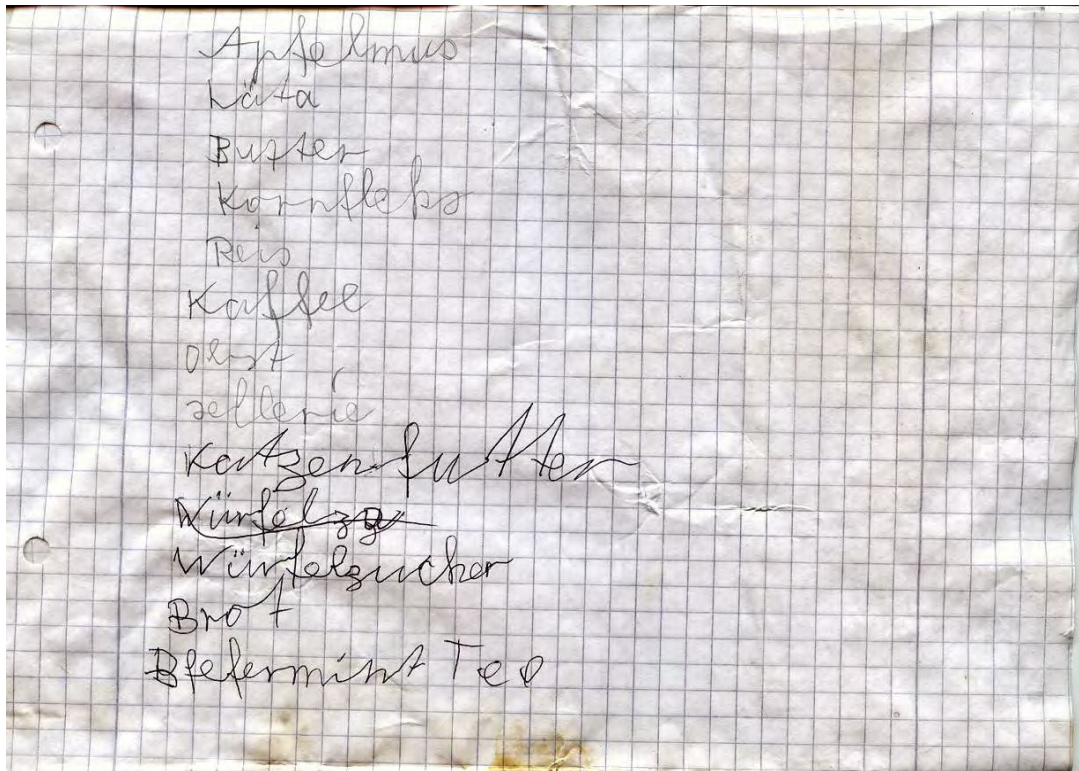 Apfelmus
Läta
Butter
Kornfleks
Reis
Kaffee
Obst
sellerie
Katzenfutter
Würfelzu
Würfelzucker
Brot
Bfefermint Tee